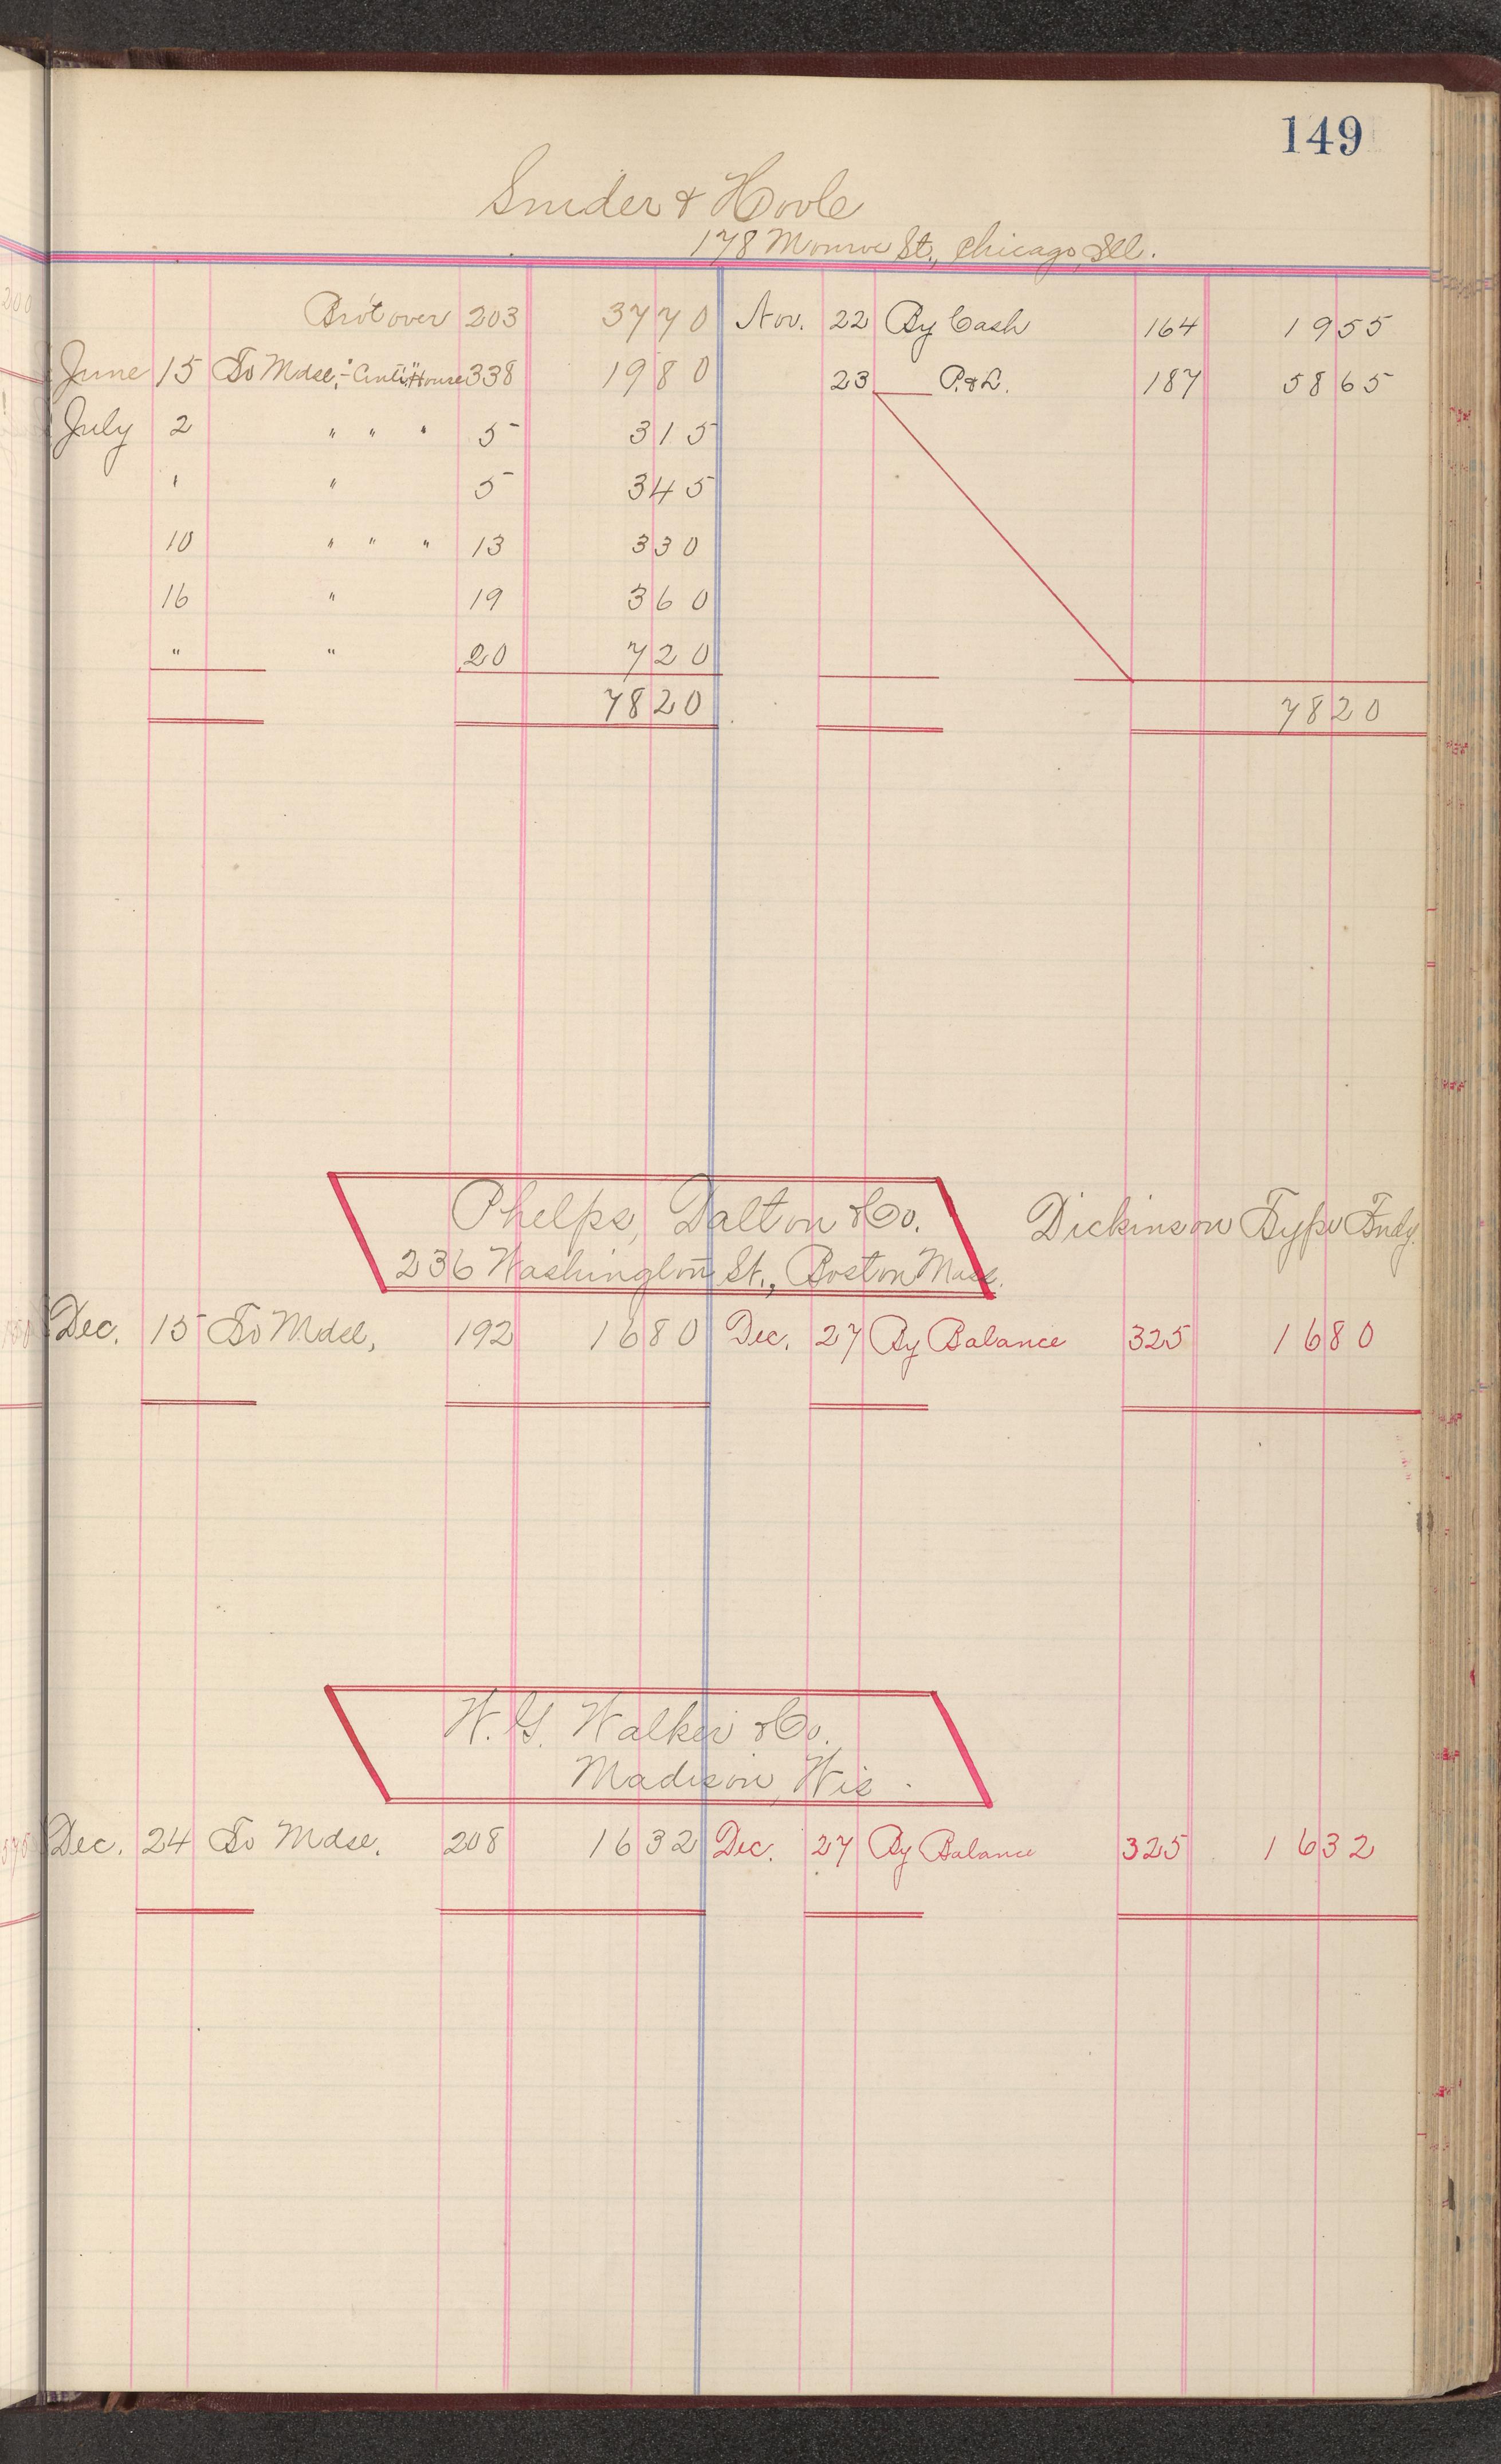 149
Snider & Hoole
178 Monroe St., Chicago, Ill.
Bro't over 203 37 70 Nov. 22 By Cash 164 19 55
June 15 To Mdse, - House 338 19 80 23 P. & L. 187 58 65
July 2 " " " 5 3 15
" " 5 3 45
10 " " " 13 3 30
16 " 19 3 60
" " 20 7 20
78 20 78 20
Phelps, Dalton & Co. Dickinson Type Fndy.
236 Washington St., Boston Mass.
Dec. 15 To Mdse, 192 16 80 Dec. 27 By Balance 325 16 80
W. G. Walker & Co.
Madison, Wis.
Dec. 24 To Mdse. 208 16 32 Dec. 27 By Balance 325 16 32